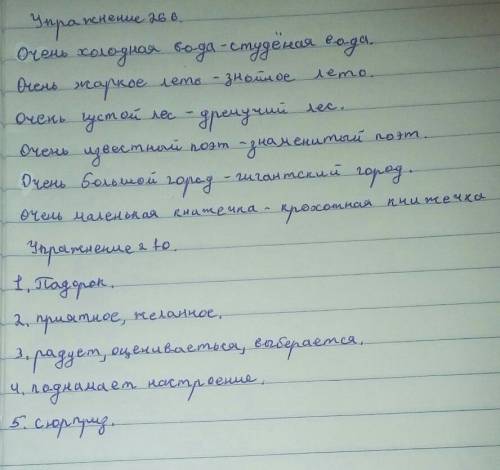 Упражнение 26 в.
Очень холодная вода - студёная вода.
Очень жаркое лето - знойное лето.
Очень густой лес - дремучий лес.
Очень известный поэт - знаменитый поэт.
Очень большой город - гигантский город.
Очень маленькая книжечка - крохотная книжечка
Упражнение 270.
1. Падорок.
2. приятное, желанное.
3. радует, оцениваеться, выберается.
4. поднимает настроение.
5. сюрприз.